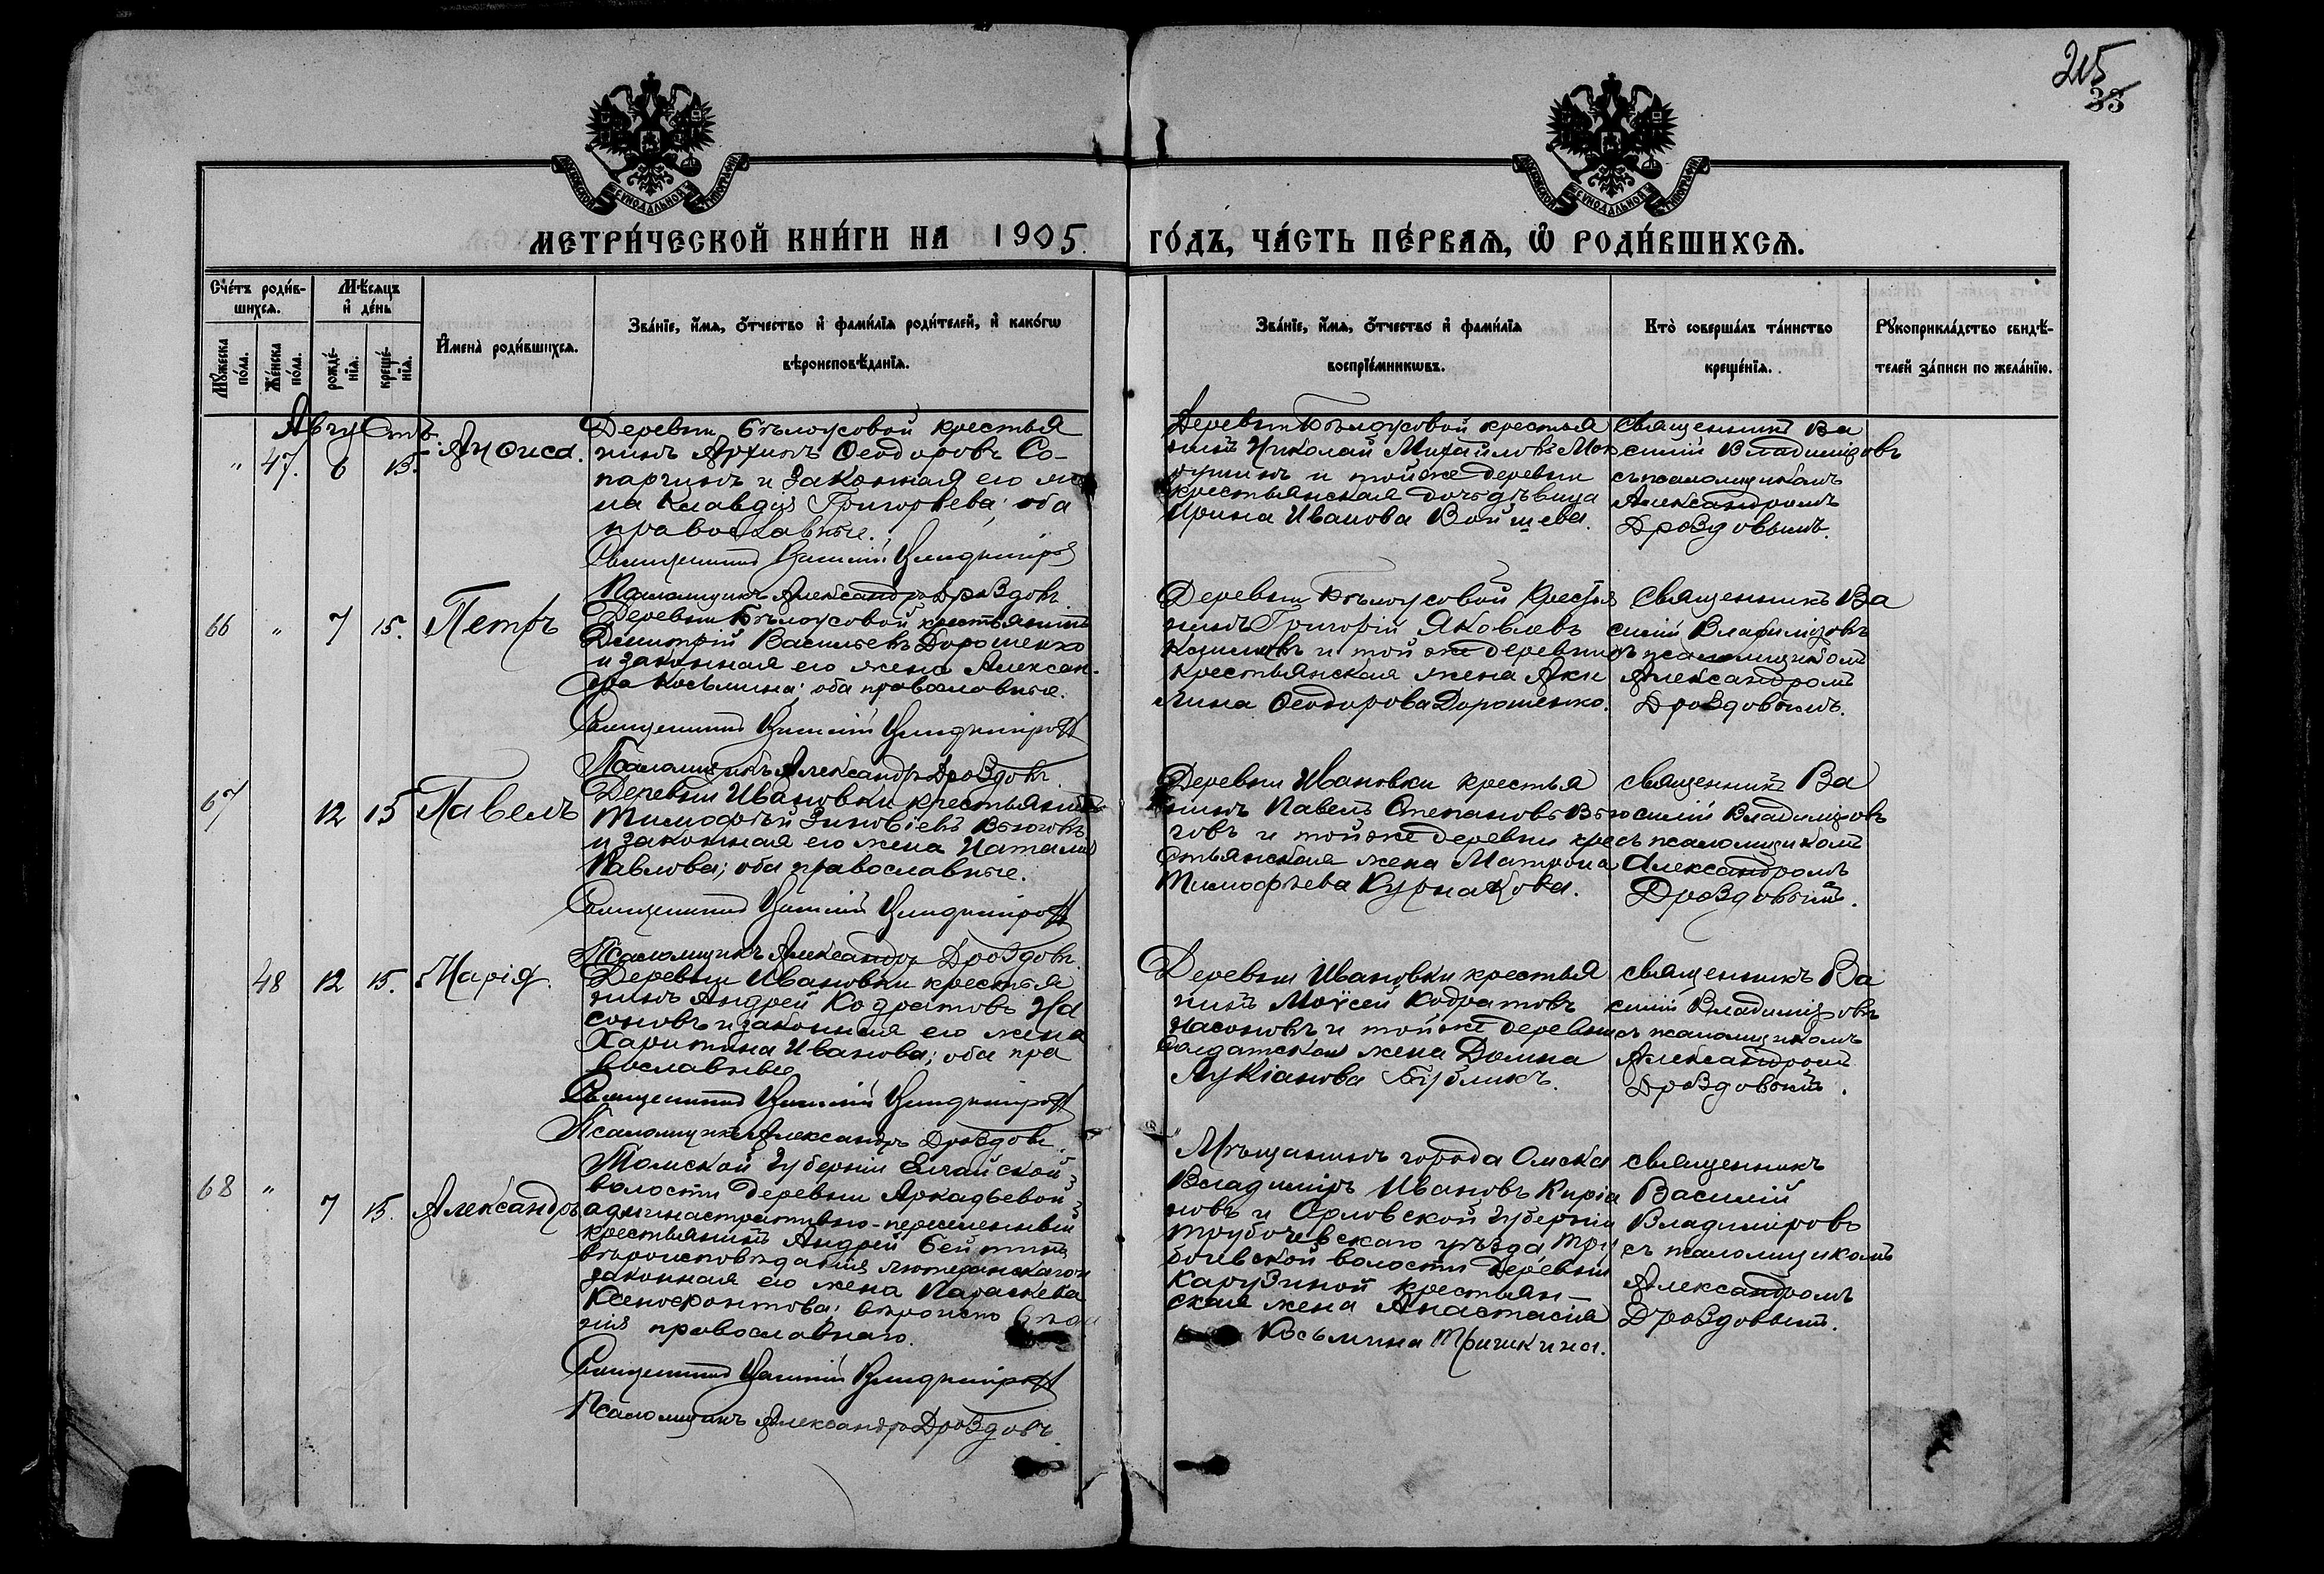 215
33
МОСКОВСКОЙ СѴНОДАЛЬНОЙ ТИПОГРАФІИ
МОСКОВСКОЙ СѴНОДАЛЬНОЙ ТИПОГРАФІИ
МЕТРИ́ЧЕСКОЙ КНИ́ГИ НА 1905. ГО́ДЪ, ЧА́СТЬ ПЕ́РВАѦ, Ѡ҆ РОДИ́ВШИХСѦ.
Счетъ роди́в-
шихсѧ.
Му́жеска по́ла.
Же́нска по́ла.
Мѣ́сѧцъ
и҆ де́нь
рожде́-
нїѧ.
креще́-
нїѧ.
И҆мена̀ роди́вшихсѧ.
Зва́нїе, и҆́мѧ, ѻ҆́тчество и҆ фами́лїѧ роди́телей, и҆ како́гѡ
вѣроисповѣ́данїѧ.
Зва́нїе, и҆́мѧ, ѻ҆́тчество и҆ фами́лїѧ
воспрїе́мникѡвъ.
Кто̀ соверша́лъ та́инство
креще́нїѧ.
Рꙋкоприкла́дство свидѣ́-
телей за́писи по жела́нїю.
Августъ.
" 47. 6 15. Анфиса.
Деревни Бѣлоусовой крестья
нинъ Архипъ Ѳеодоровъ Со-
парчинъ и законная его же
на Клавдія Григорьева; оба
православные.
Священникъ Василій Владиміровъ
Псаломщикъ Александръ Дроздовъ.
Деревни Бѣлоусовой крестья
нинъ Николай Михайловъ Мок
рушинъ и той же деревни
крестьянская дочь дѣвица
Ирина Иванова Войшева.
Священникъ Ва
силій Владиміровъ
съ псаломщикомъ
Александромъ
Дроздовымъ.
66 " 7 15. Петръ
Деревни Бѣлоусовой крестьянинъ
Димитрій Васильевъ Дорошенко
и законная его жена Алексан-
дра Косьмина; оба православные.
Священникъ Василій Владиміровъ
Псаломщикъ Александръ Дроздовъ
Деревни Бѣлоусовой Крестья
нинъ Григорій Яковлевъ
и той же деревни
крестьянская жена Аки
лина Ѳеодорова Дорошенко.
Священникъ Ва
силій Владиміровъ
съ псаломщикомъ
Александромъ
Дроздовымъ.
67 12 15 Павелъ
Деревни Ивановки крестьянинъ
Тимофѣй Зиновіевъ Вьюговъ
и законная его жена Наталія
Павлова; оба православные.
Священникъ Василій Владиміровъ
Псаломщикъ Александръ Дроздовъ.
Деревни Ивановки крестья
нинъ Павелъ Степановъ Вью
говъ и той же деревни кре
стьянская жена Матрона
Тимофѣева Курнакова.
Священникъ Ва
силій Владиміровъ
съ псаломщикомъ
Александромъ
Дроздовымъ.
48 12 15. Марія.
Деревни Ивановки крестья
нинъ Андрей Кодратовъ На
соновъ и законная его жена
Харитина Иванова; оба пра
вославные
Священникъ Василій Владиміровъ
Псаломщикъ Александръ Дроздовъ.
Деревни Ивановки крестья
нинъ Моѵсей Кодратовъ
Насоновъ и той же деревни
солдатская жена Домна
Лукіанова Бубликъ.
Священникъ Ва
силій Владиміровъ
съ псаломщикомъ
Александромъ
Дроздовымъ.
68 " 7 15. Александръ
Томской Губерніи Елгайской
волости деревни Аркадьевой
административно-переселенный
крестьянинъ Андрей Бейтинъ
вѣроисповѣданія лютеранскаго и
законная его жена Параскева
Ксенофонтова; вѣроисповѣда
нія православнаго.
Священникъ Василій Владиміровъ
Псаломщикъ Александръ Дроздовъ.
Мѣщанинъ города Омска
Владиміръ Ивановъ Киріа
новъ и Орловской Губерніи
Трубочевскаго уѣзда Тру
бочевской волости Деревни
Карузиной крестьян-
ская жена Анастасія
Косьмина Тришкина.
Священникъ
Василій
Владиміровъ
съ псаломщикомъ
Александромъ
Дроздовымъ.